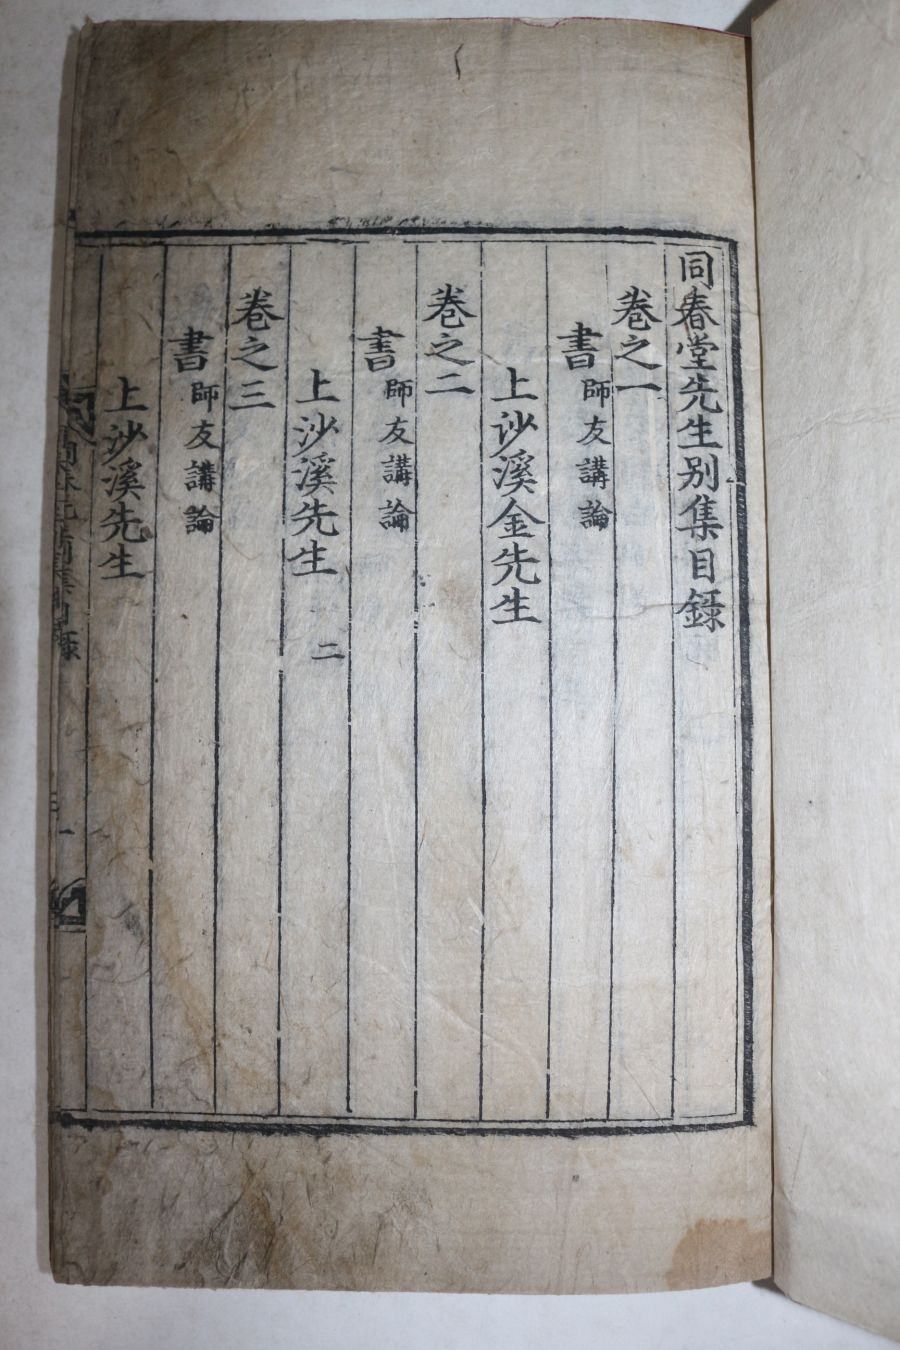 同春堂先生別集目錄
卷之一
書 師友講論
上沙溪金先生
卷之二
書 師友講論
上沙溪先生 二
卷之三
書 師友講論
上沙溪先生